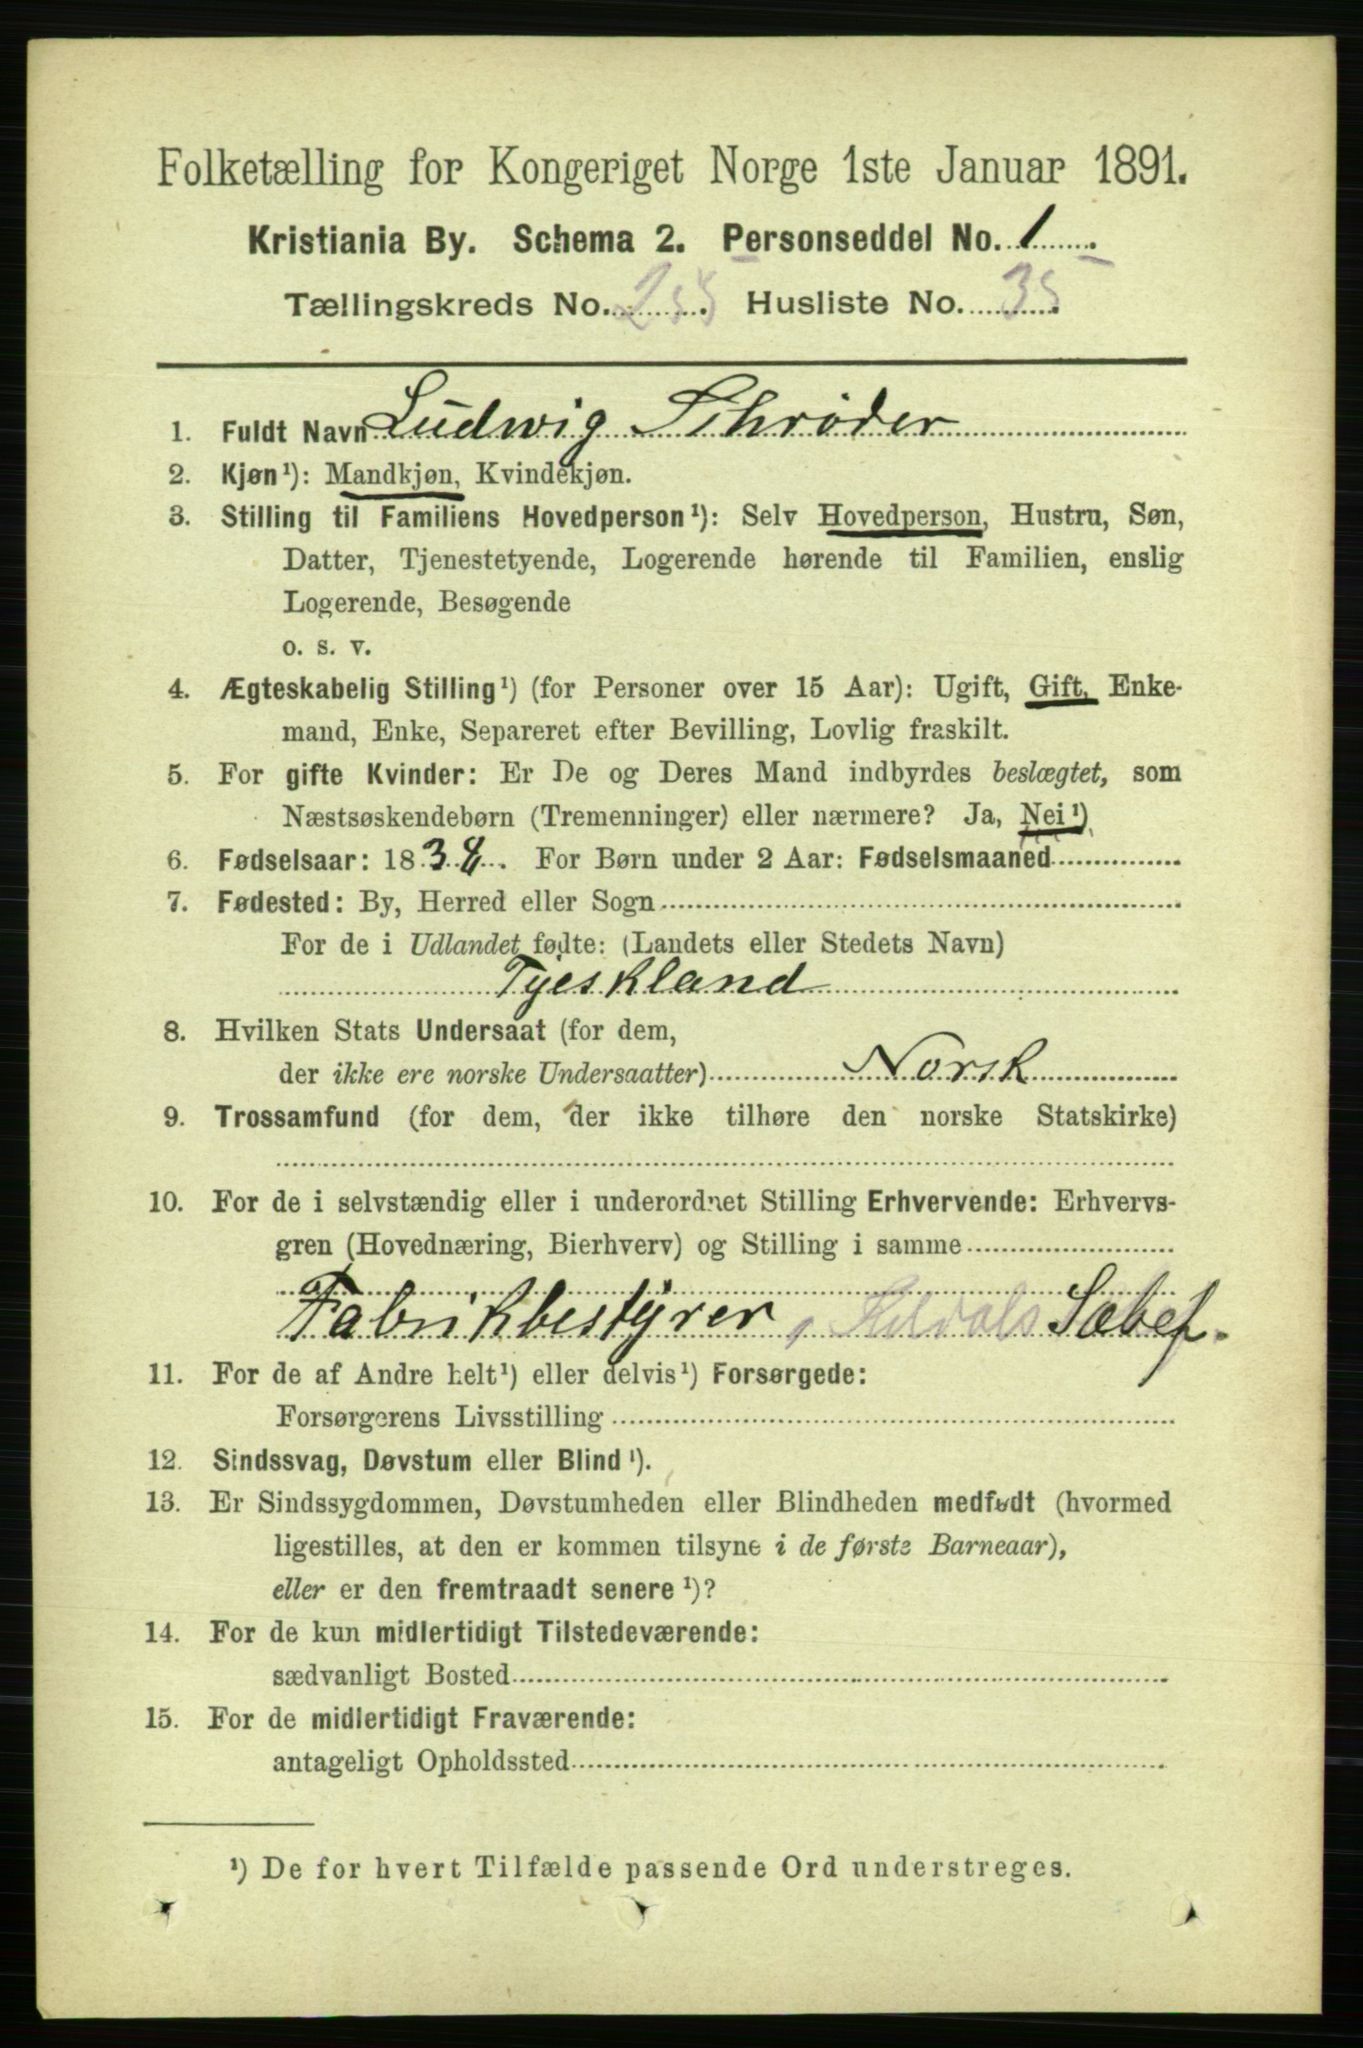 Folketælling for Kongeriget Norge 1ste Januar 1891.
Kristiania By. Schema 2. Personseddel No. 1.
Tællingskreds No. 255. Husliste No. 35.
1. Fuldt Navn Ludwig Schrøder
2. Kjøn¹): Mandkjøn, Kvindekjøn.
3. Stilling til Familiens Hovedperson¹): Selv Hovedperson, Hustru, Søn,
Datter, Tjenestetyende, Logerende hørende til Familien, enslig
Logerende, Besøgende
o. s. v.
4. Ægteskabelig Stilling¹) (for Personer over 15 Aar): Ugift, Gift, Enke-
mand, Enke, Separeret efter Bevilling, Lovlig fraskilt.
5. For gifte Kvinder: Er De og Deres Mand indbyrdes beslægtet, som
Næstsøskendebørn (Tremenninger) eller nærmere? Ja, Nei¹)
6. Fødselsaar: 1838. For Børn under 2 Aar: Fødselsmaaned
7. Fødested: By, Herred eller Sogn
For de i Udlandet fødte: (Landets eller Stedets Navn)
Tyeskland
8. Hvilken Stats Undersaat (for dem,
der ikke ere norske Undersaatter) Norsk
9. Trossamfund (for dem, der ikke tilhøre den norske Statskirke)
10. For de i selvstændig eller i underordnet Stilling Erhvervende: Erhvervs-
gren (Hovednæring, Bierhverv) og Stilling i samme
Fabrikbestyrer, Sæbef.
11. For de af Andre helt¹) eller delvis¹) Forsørgede:
Forsørgerens Livsstilling
12. Sindssvag, Døvstum eller Blind¹).
13. Er Sindssygdommen, Døvstumheden eller Blindheden medfødt (hvormed
ligestilles, at den er kommen tilsyne i de første Barneaar),
eller er den fremtraadt senere¹)?
14. For de kun midlertidigt Tilstedeværende:
sædvanligt Bosted
15. For de midlertidigt Fraværende:
antageligt Opholdssted
¹) De for hvert Tilfælde passende Ord understreges.